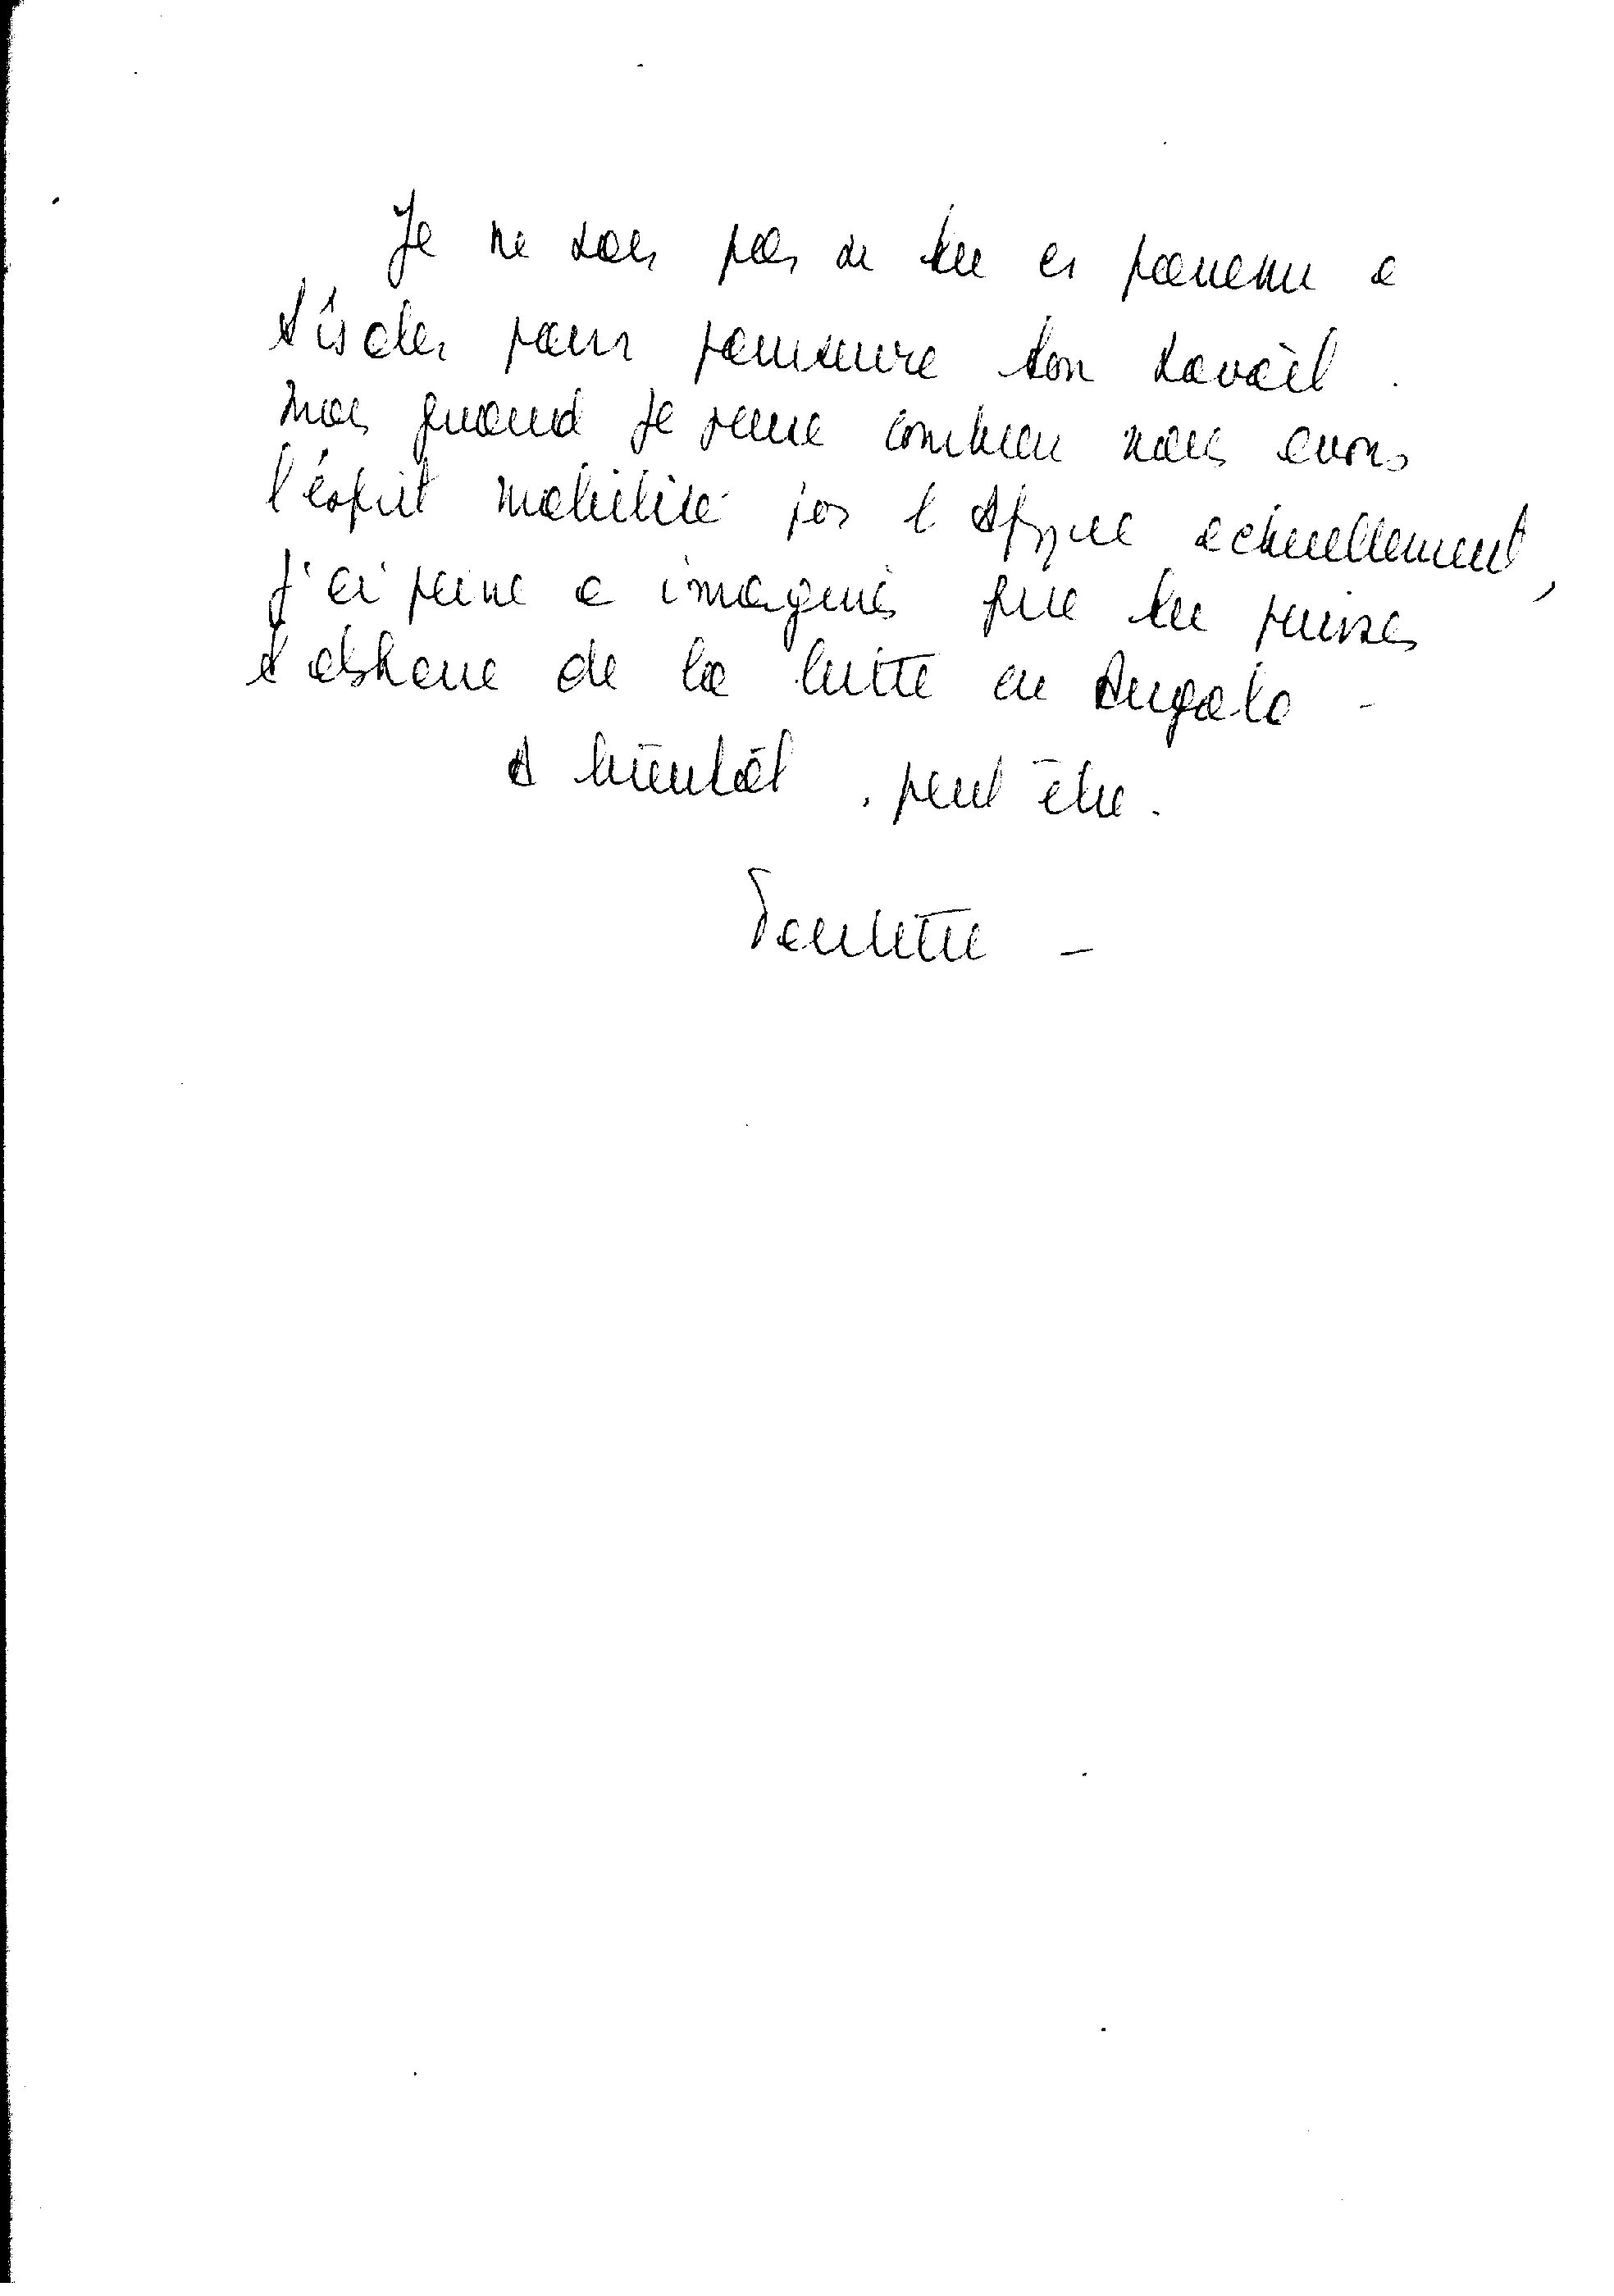 Je ne sais pas si tu es parvenu a
t'isoler pour poursuivre ton travail.
Mais quand je pense combien nous avons
l'esprit mobilisé par l'Afrique actuellement,
j'ai peine a imaginer que tu puisses
t'abstraire de la lutte en Angola -
A bientôt, peut être.
Paulette -